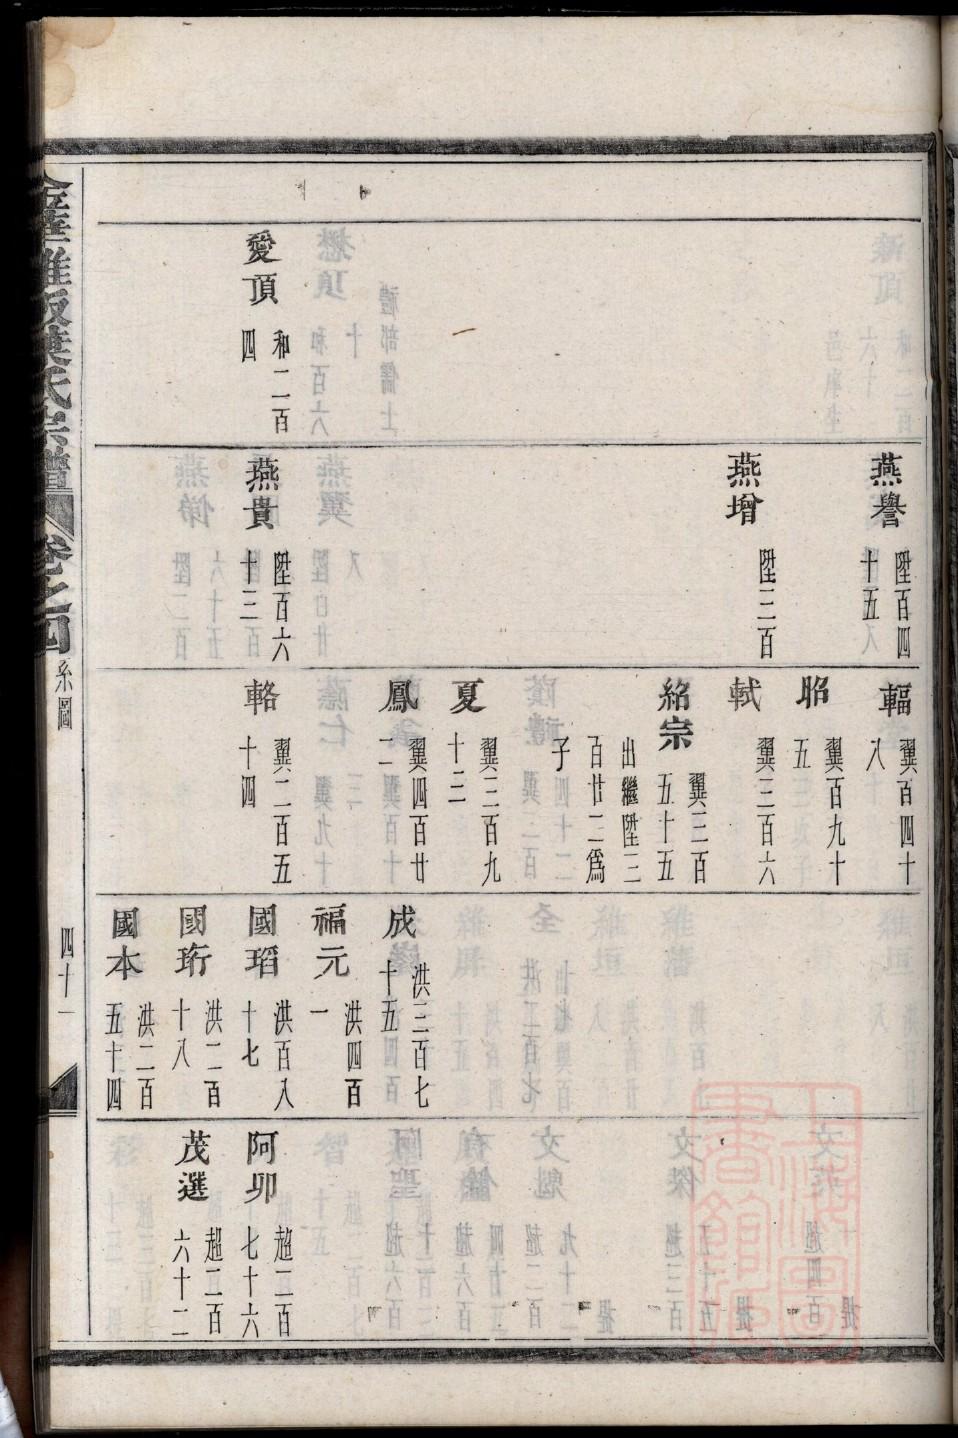 愛頂 和二百四
燕譽 陞百四十五
燕增 陞三百
燕貴 陞百六十三
輻 翼百四十八
昭 翼百九十五
軾 翼三百六
紹宗 翼三百五十五
出繼陞三百廿二爲子
夏 翼三百九十三
鳳 翼四百廿二
輅 翼二百五十四
成 洪三百七十五
福元 洪四百一
國瑫 洪百八十七
國珩 洪二百十八
國本 洪二百五十四
阿卯 趙二百七十六
茂選 趙二百六十二
氏宗譜 卷之四 系圖 四十一